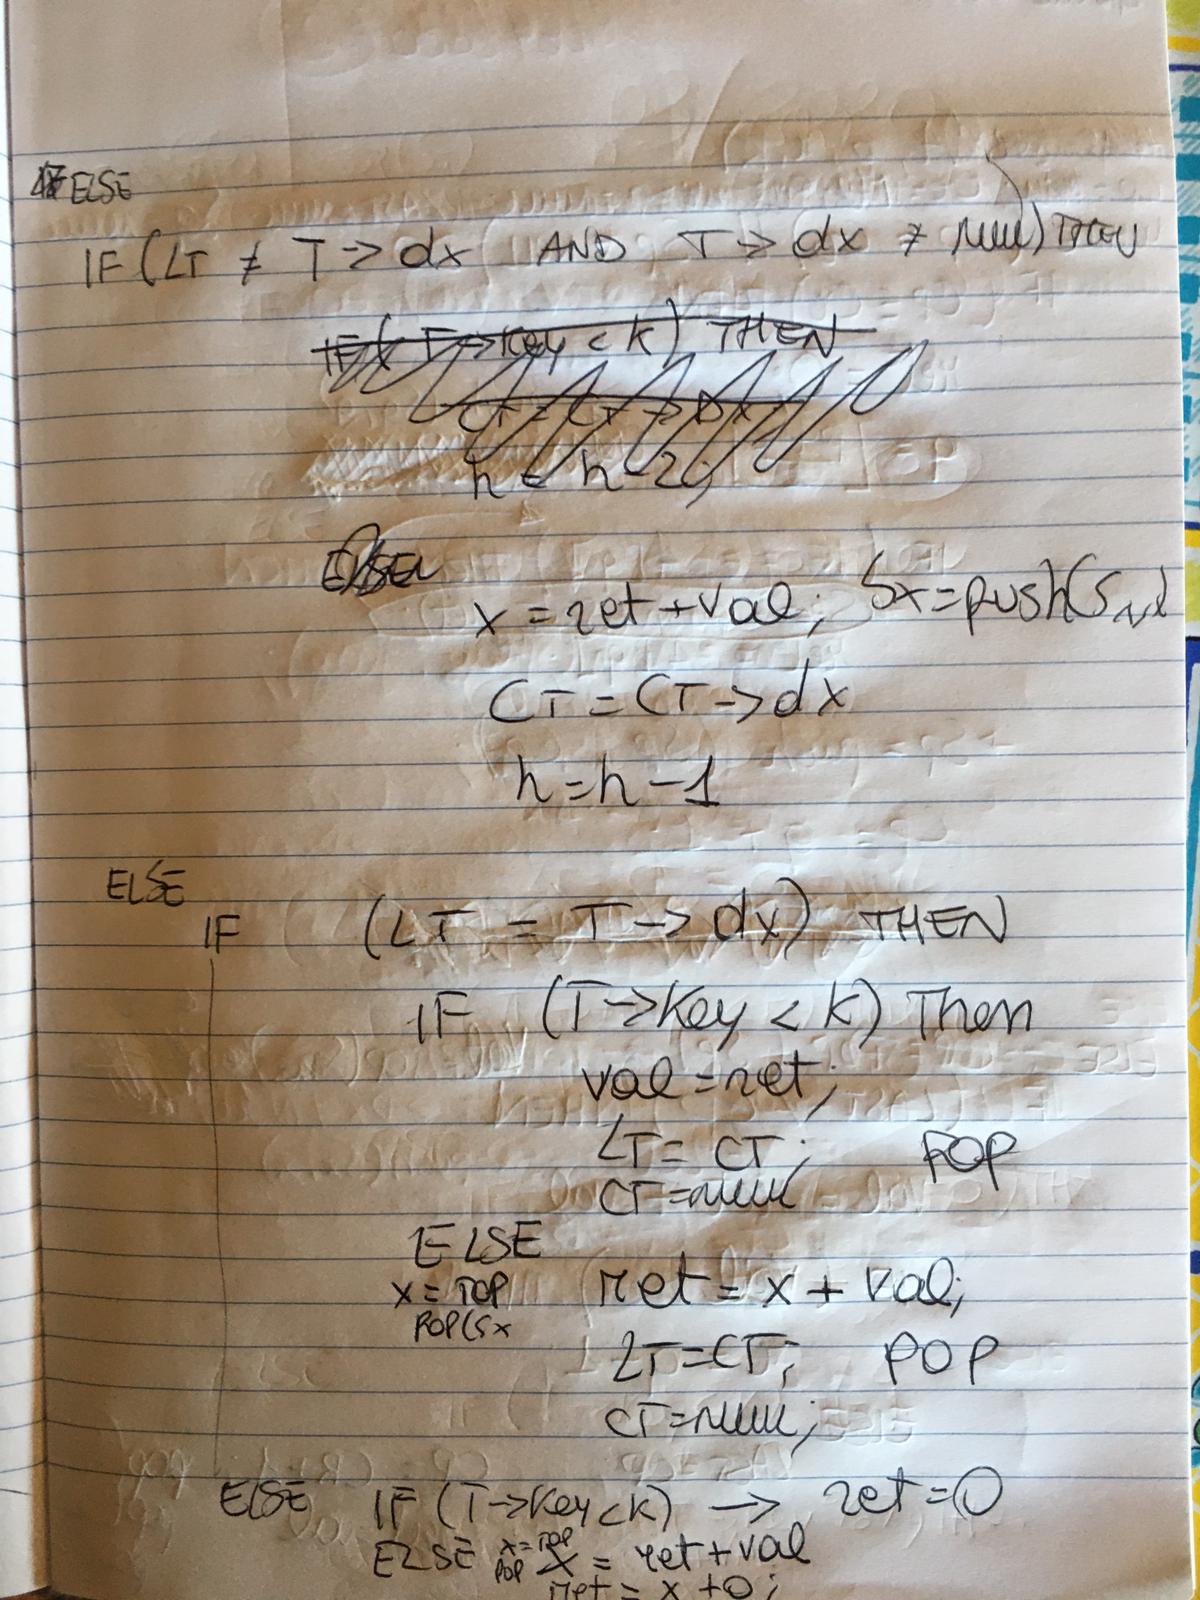 ELSE
IF (LT ≠ T -> dx AND T -> dx ≠ NULL) THEN
IF (T -> Key < K) THEN
CT = CT -> DX
h = h - 2;
ELSE
x = ret + val; Sx = push(S
CT = CT -> dx
h = h - 1
ELSE
IF (LT = T -> dx) THEN
IF (T -> Key < K) Then
val = ret;
LT = CT; POP
CT = NULL
ELSE
x = TOP ret = x + val;
POP(Sx
LT = CT; POP
CT = NULL;
ELSE IF (T -> Key < K) -> ret = 0
x = TOP
ELSE POP x = ret + val
ret = x + 0;